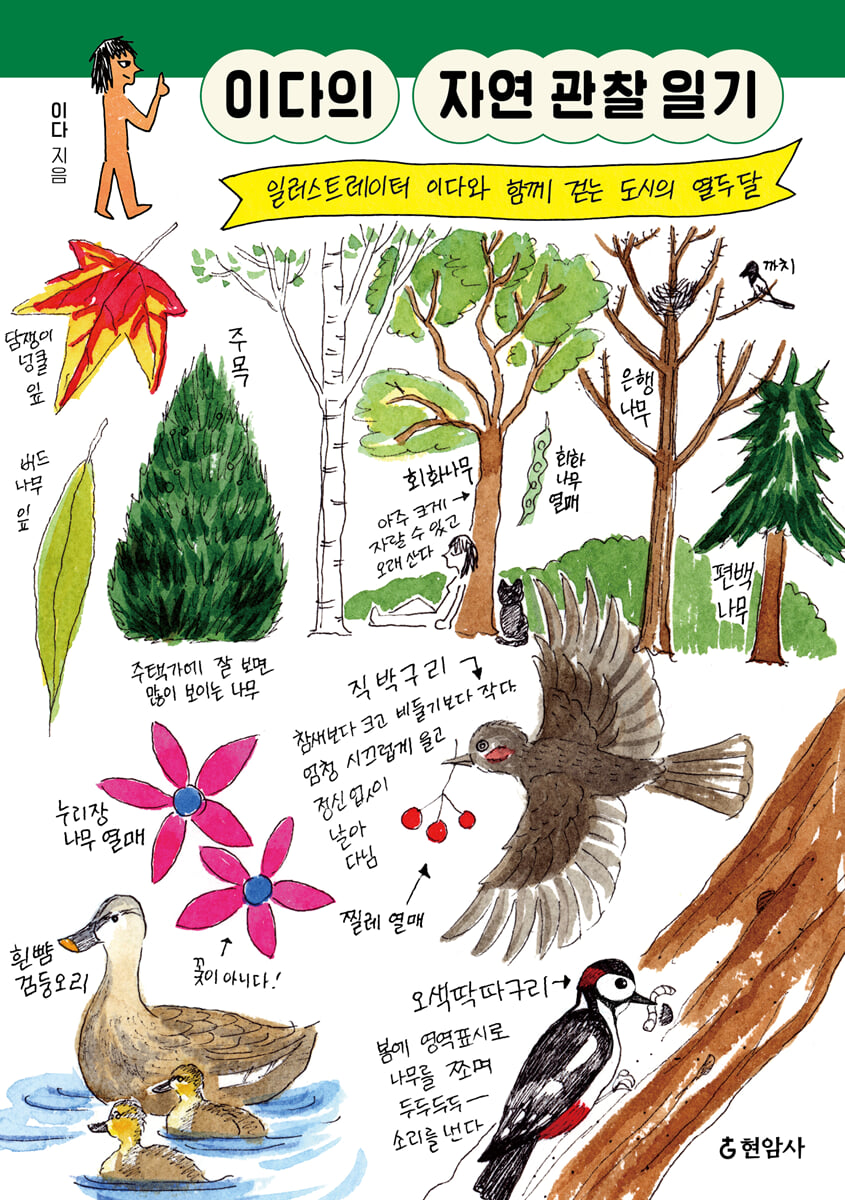 이다의 자연 관찰 일기
이다 지음
일러스트레이터 이다와 함께 걷는 도시의 열두달
까치
담쟁이
넝쿨
잎
주목
은행
나무
버드
나무
잎
회화나무
아주 크게
자랄 수 있고
오래 산다
회화
나무
열매
편백
나무
주택가에 잘 보면
많이 보이는 나무
직박구리
참새보다 크고 비둘기보다 작다.
엄청 시끄럽게 울고
정신없이
날아
다님
누리장
나무 열매
찔레 열매
꽃이 아니다!
흰뺨
검둥오리
오색딱따구리
봄에 영역표시로
나무를 쪼며
두두두두—
소리를 낸다
현암사